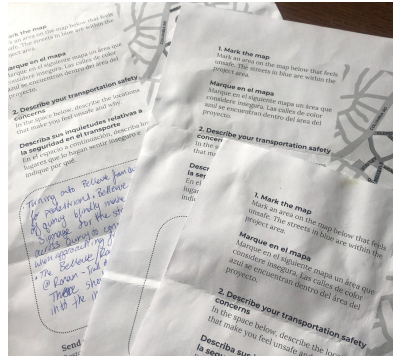 ark the map
an area on the map below that feels
unsafe. The streets in blue are within the
project area.
Marque en el mapa
Marque en el siguiente mapa un área que
considere insegura. Las calles de color
azul se encuentran dentro del área del
proyecto.
2. Describe your transportation safety
concerns
In the space below, describe the locations
that make you feel unsafe and why.
Describa sus inquietudes relativas a
la seguridad en el transporte
En el espacio a continuación, describa los
lugares que lo hagan sentir inseguro e
indique por qué.
Turning onto Bellevue from
for pedestrians. Bellevue
when approaching
The Bellevue
There
into the
Send
1. Mark the map
Mark an area on the map below that feels
unsafe. The streets in blue are within the
project area.
Marque en el mapa
Marque en el siguiente mapa un área que
considere insegura. Las calles de color
azul se encuentran dentro del área del
proyecto.
2. Describe your transportation safety
concern
In the s
that m
Desc
la se
En el
luga
indic
1. Mark the map
Mark an area on the map below that feels
unsafe. The streets in blue are within the
project area.
Marque en el mapa
Marque en el siguiente mapa un área que
considere insegura. Las calles de color
azul se encuentran dentro del área del
proyecto.
2. Describe your transportation safety
concerns
In the space below, describe the loc
that make you feel unsafe an
Describa su
la segu